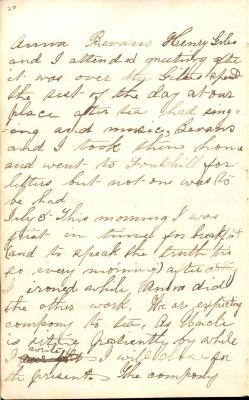 20
Anna Bevans Henry Giles
and I attended meeting after
it was over the Giles' spent
the rest of the day at our
place after tea had sing-
ing and music, Bevans
and I took them home
and went to Fonthill for
letters but not one was to
be had
July 5 This morning I was
just in time for breakfast
(and to speak the truth tis
so every morning) after
I ironed while Anna did
the other work. We are expecting
company to tea. As Uncle
is waiting patiently by while
I write I will close for
the present. The company